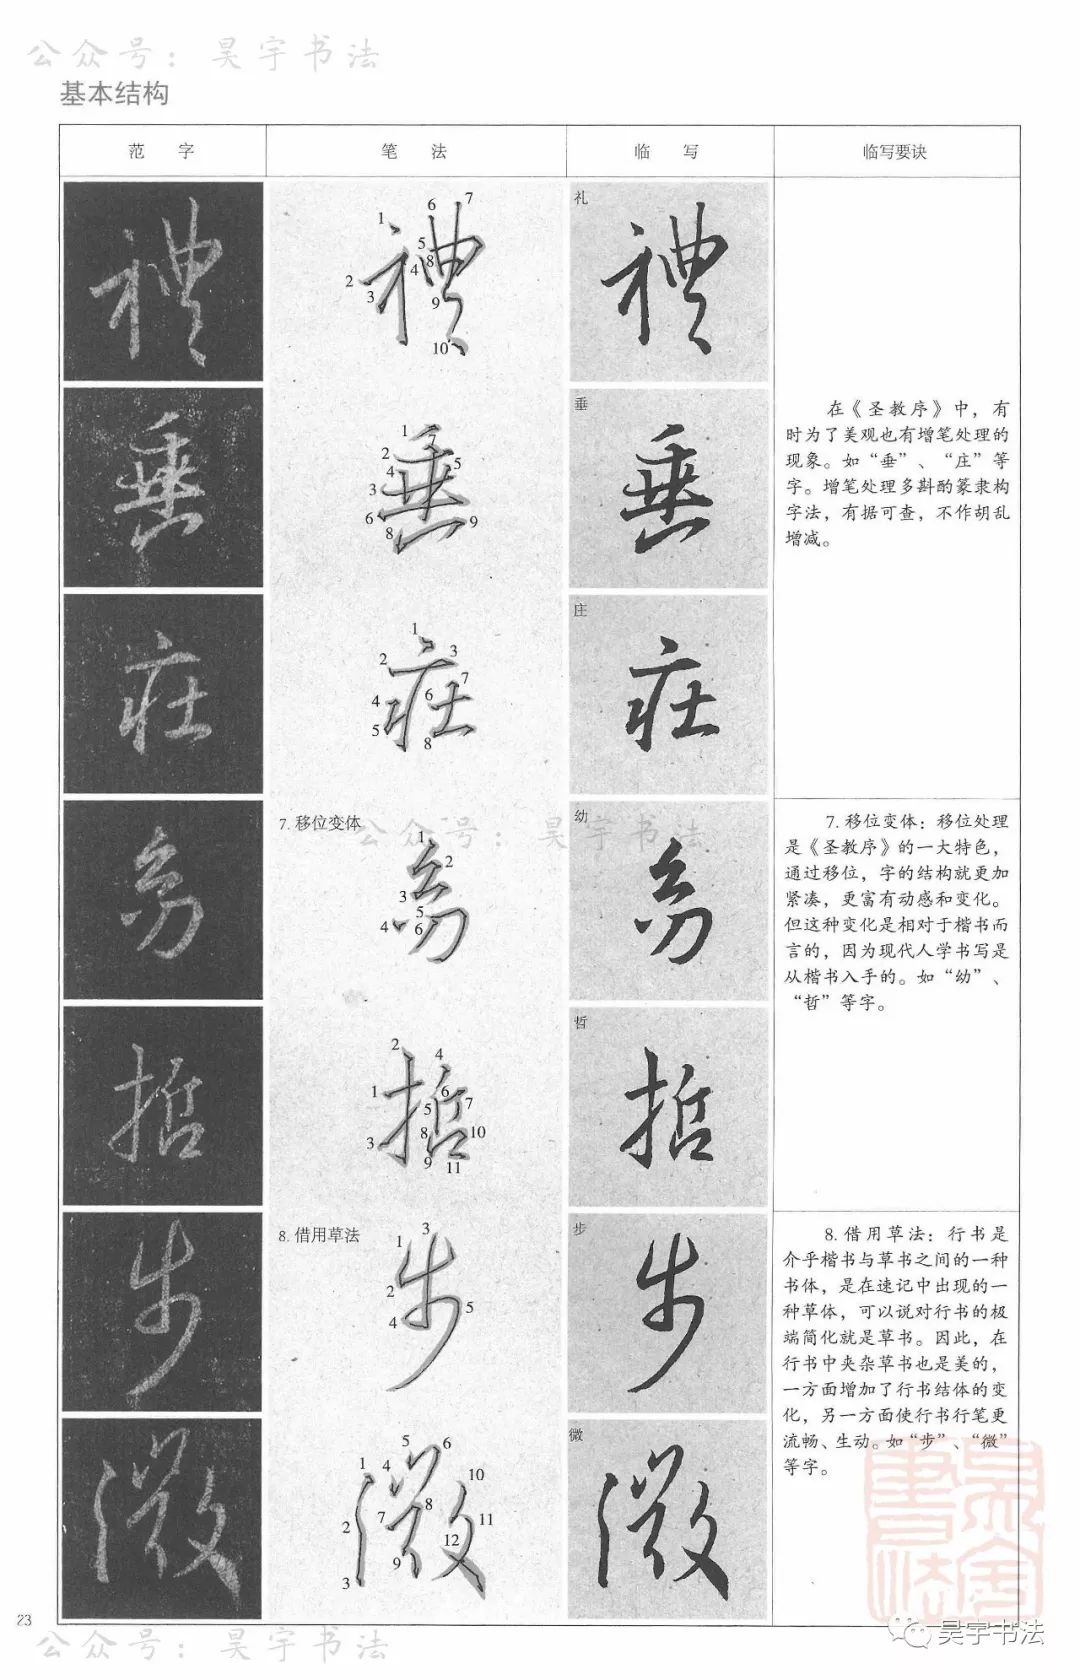 公众号：昊宇书法
基本结构
范 字
笔 法
临 写
临写要诀
礼
1 2 3 4 5 6 7 8 9 10
垂
1 2 3 4 5 6 8 9
在《圣教序》中，有
时为了美观也有增笔处理的
现象。如“垂”、“庄”等
字。增笔处理多斟酌篆隶构
字法，有据可查，不作胡乱
增减。
庄
1 2 3 4 5 6 7 8
7. 移位变体
公众号：昊宇书法
幼
1 2 3 4 5 6
7. 移位变体：移位处理
是《圣教序》的一大特色，
通过移位，字的结构就更加
紧凑，更富有动感和变化。
但这种变化是相对于楷书而
言的，因为现代人学书写是
从楷书入手的。如“幼”、
“哲”等字。
哲
1 2 3 4 5 6 7 8 9 10 11
8. 借用草法
步
1 2 3 4 5
8. 借用草法：行书是
介乎楷书与草书之间的一种
书体，是在速记中出现的一
种草体，可以说对行书的极
端简化就是草书。因此，在
行书中夹杂草书也是美的，
一方面增加了行书结体的变
化，另一方面使行书行笔更
流畅、生动。如“步”、“微”
等字。
微
1 2 3 4 5 6 7 8 9 10 11 12
昊宇書法
23
公众号：昊宇书法
昊宇书法